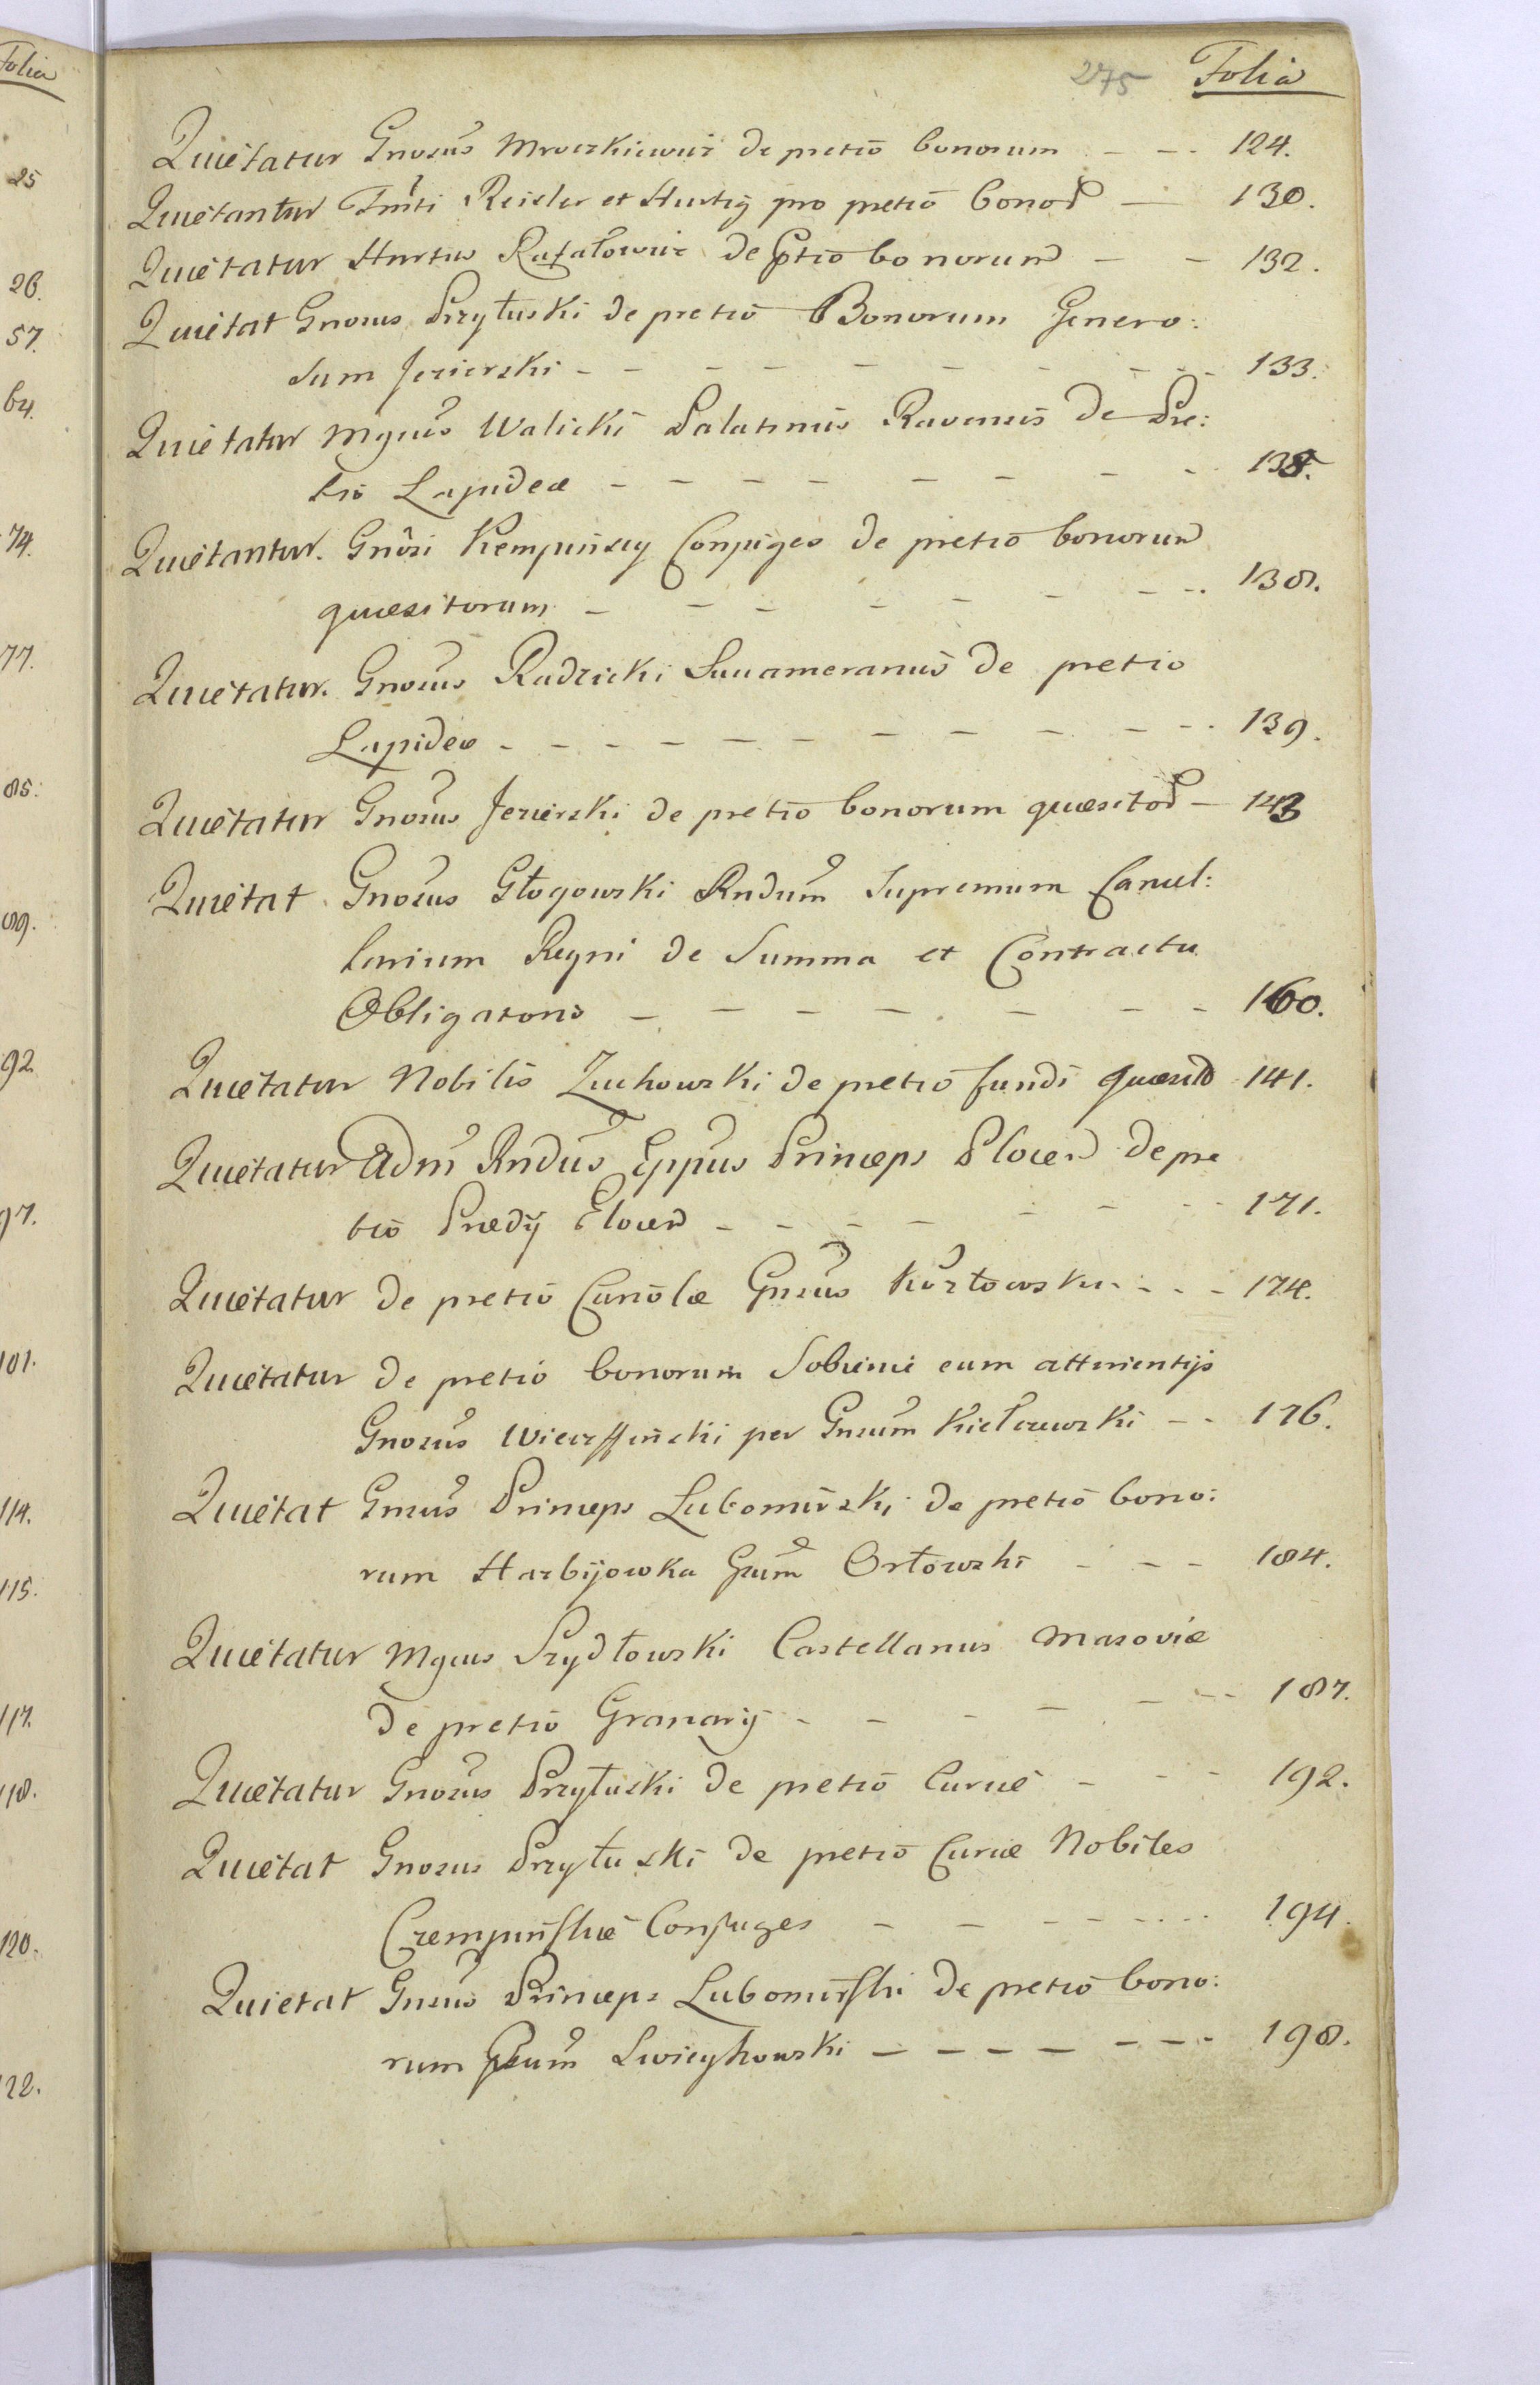 275 Folia
Quietatur Gnosus Mroczkiewicz de pretio bonorum - - - 124.
Quietantur Reisler et Hurtig pro pretio bonor - 130.
Quietatur Rafałowicz de ptio bonorum - - 132.
Quietat Gnosus Przyłuski de pretio Bonorum Genero:
sum Jezierski - - - - - - - - - 133.
Quietatur Mgnus Walicki Palatinus Ravensis de Pre:
tio Lapideæ - - - - - - - - 138.
Quietantur Gnosi Kempinscy Conjuges de pretio bonorum
quæsitorum - - - - - - - - 138.
Quietatur Gnosus Radzicki Succameranus de pretio
Lapideæ - - - - - - - - - - 139.
Quietatur Gnosus Jezierski de pretio bonorum quæsitor - 143
Quietat Gnosus Głogowski Rndum Supremum Cancel:
larium Regni de Summa et Contractu
Obligatorio - - - - - - - 160.
Quietatur Nobilis Zuchowski de pretio fundi quæsiti 141.
Quietatur Adm Rndus Eppus Princeps Plocen de pre
tio Prædij Plocen - - - - - - - 171.
Quietatur de pretio Curiolæ Gnsus Kozłowski - - - 174.
Quietatur de pretio bonorum Sobienie cum attinentijs
Gnosus per Gnsum Kiełczewski - - 176.
Quietat Gnsus Princeps Lubomirski de pretio bono:
rum Harbijowka Gnum Orłowski - - - 184.
Quietatur Mgcus Szydłowski Castellanus Masoviæ
de pretio Granarij - - - - - - - 187.
Quietatur Gnosus Przyłuski de pretio Curiæ - - - 192.
Quietat Gnosus Przyłuski de pretio Curiæ Nobiles
Czempinskie Conjuges - - - - - - - 194.
Quietat Gnsus Princeps Lubomirski de pretio bono:
rum Gnum Swieykowski - - - - - - - - 198.
Folia
25
26.
57.
64.
74.
77.
85.
89.
92.
97.
101.
114.
115.
117.
118.
120.
122.